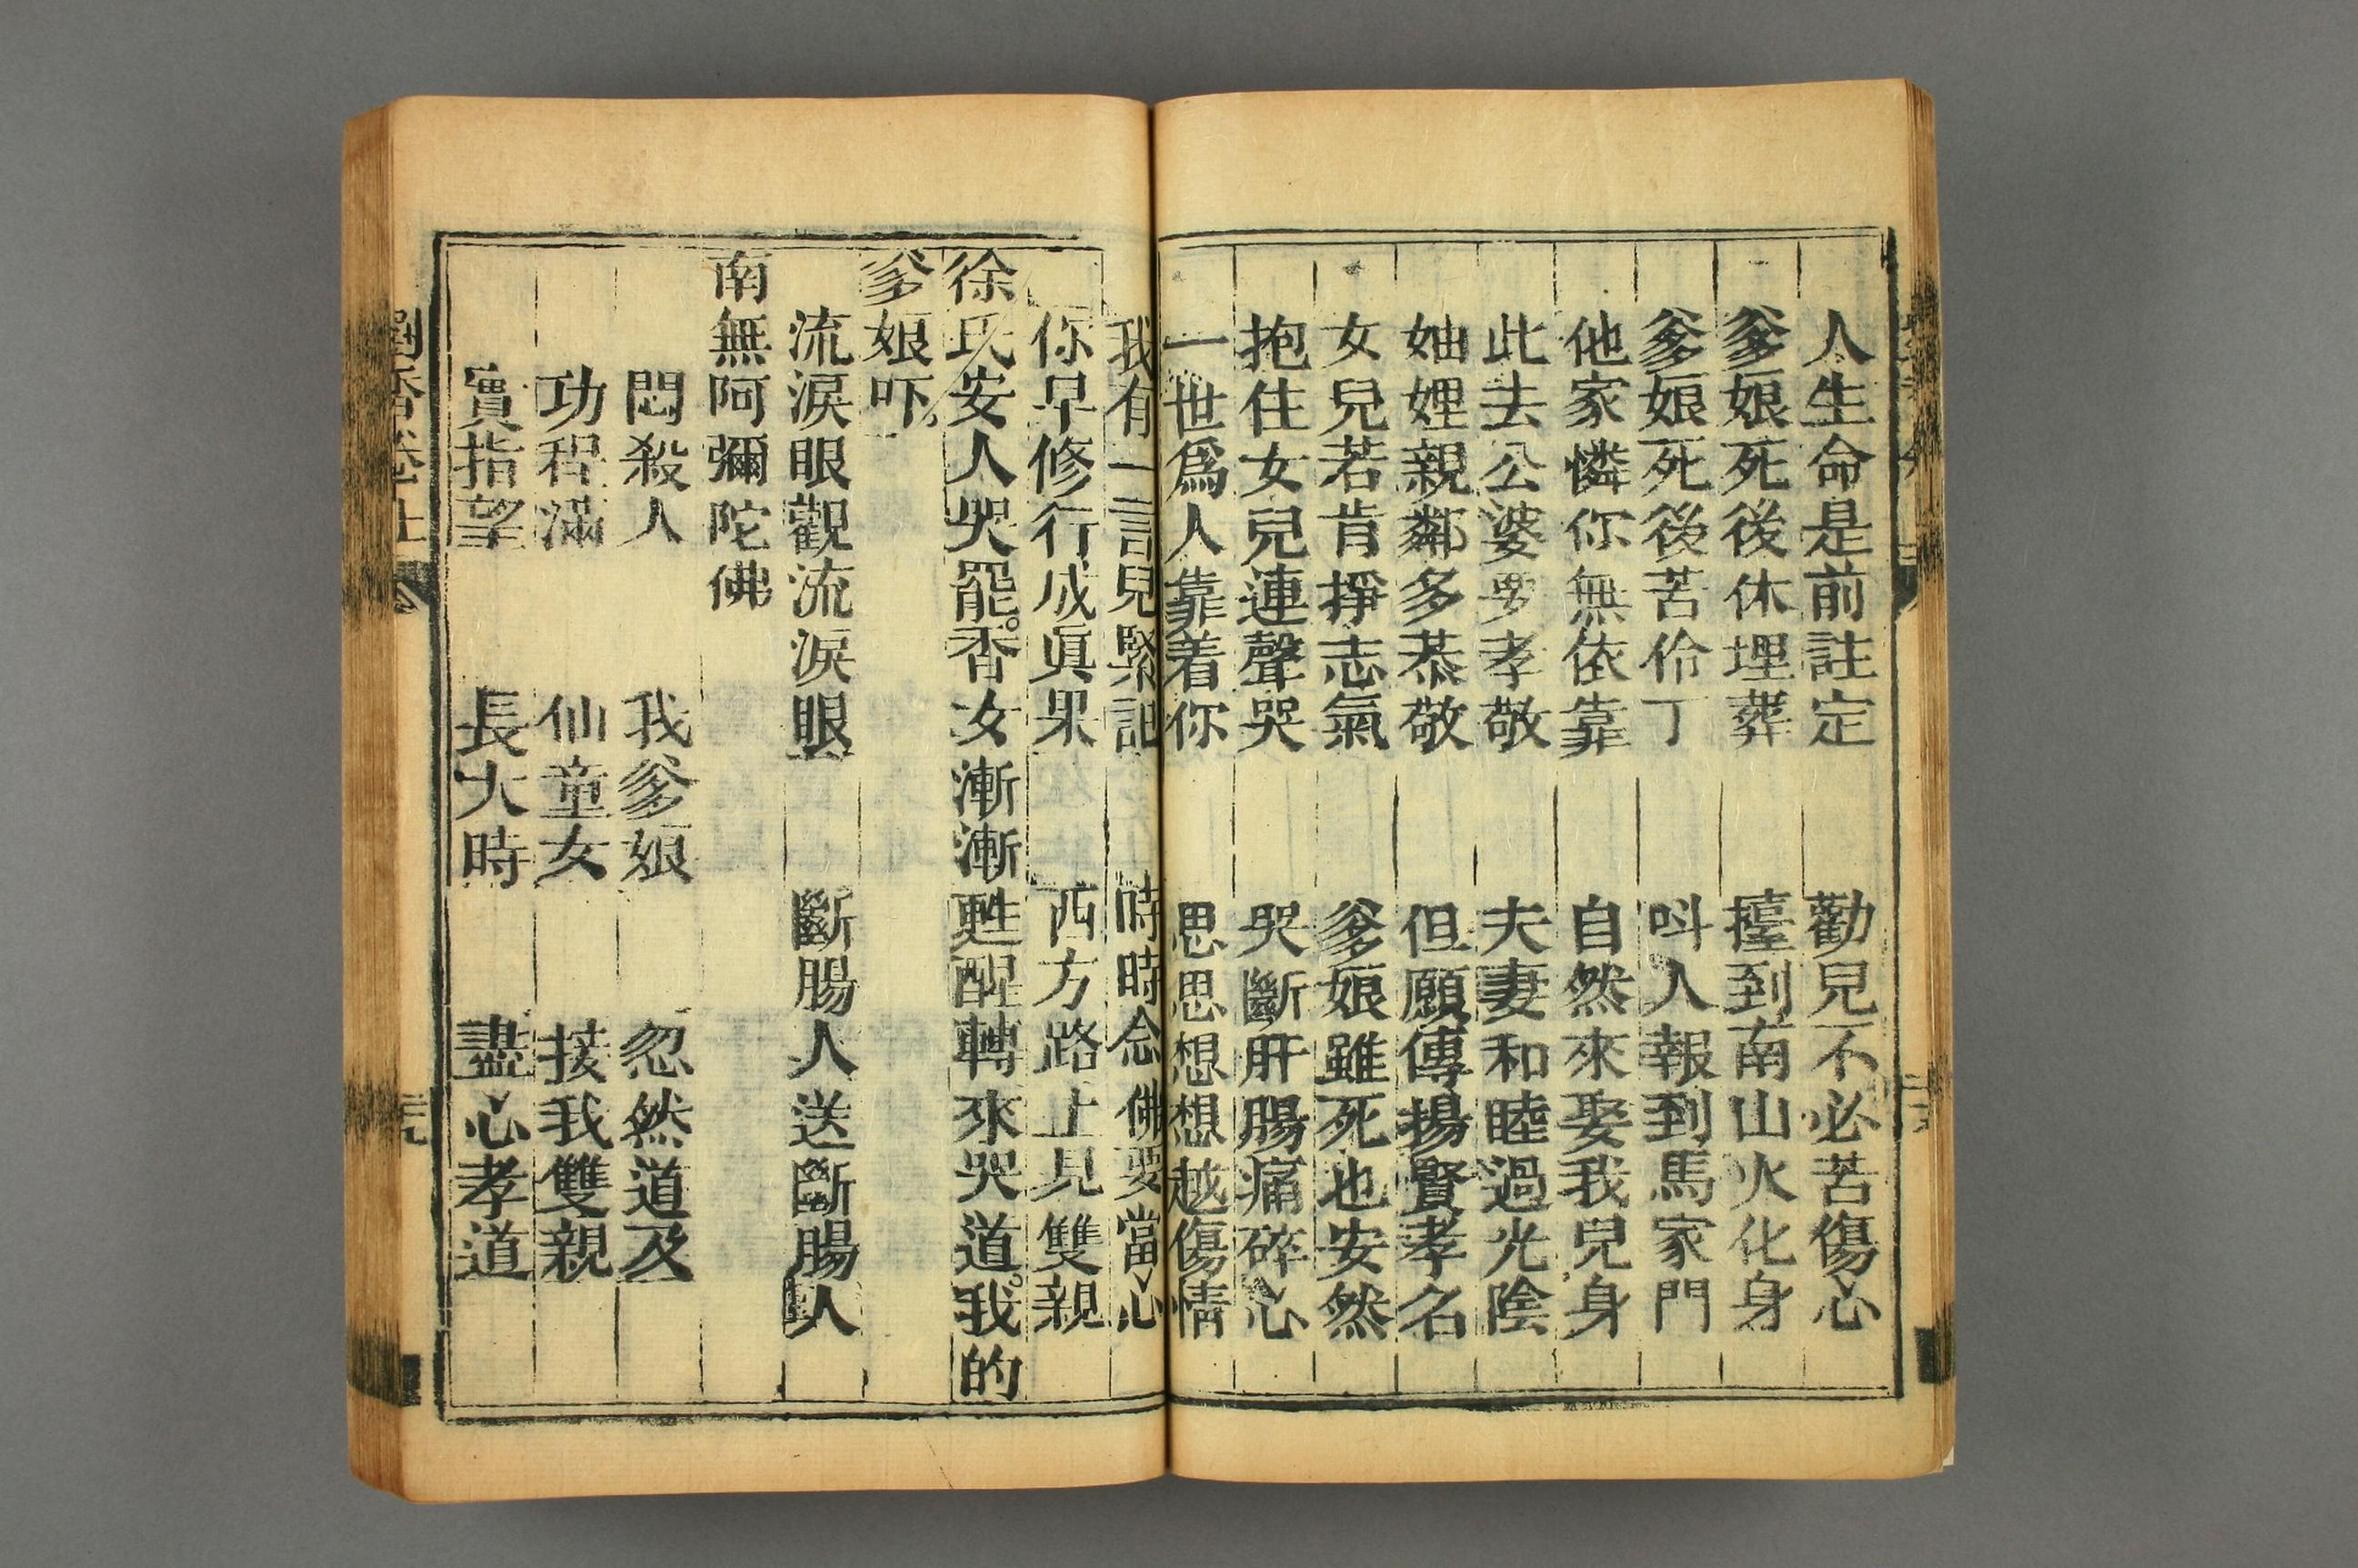 人生命是前註定 勸兒不必苦傷心
爹娘死後休埋葬 擡到南山火化身
爹娘死後苦伶丁 呌人報到馬家門
他家憐你無依靠 自然來娶我兒身
此去公婆要孝敬 夫妻和睦過光陰
妯娌親鄰多恭敬 但願傳揚賢孝名
女兒若肯掙志氣 爹娘雖死也安然
抱住女兒連聲哭 哭斷肝腸痛碎心
一世爲人靠着你 思思想想越傷情
我有一言兒緊記 時時念佛要當心
你早修行成眞果 西方路上見雙親
徐氏安人哭罷。香女漸漸甦醒轉來哭道。我的
爹娘吓。
流淚眼觀流淚眼 斷腸人送斷腸人
南無阿彌陀佛
悶殺人 我爹娘 忽然道及
功程滿 仙童女 接我雙親
實指望 長大時 盡心孝道
劉香卷上 二九